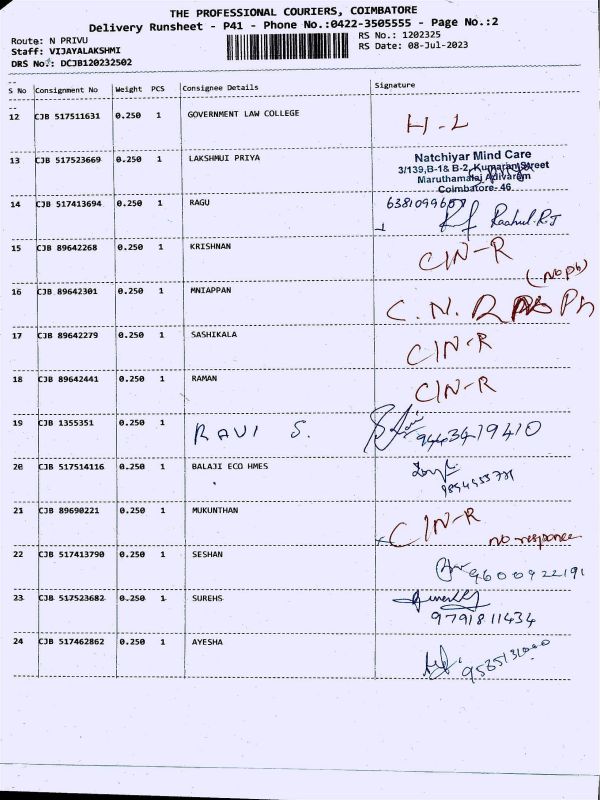 THE PROFESSIONAL COURIERS, COIMBATORE
Delivery Runsheet - P41 - Phone No.:0422-3505555 - Page No.:2
Route: N PRIVU
Staff: VIJAYALAKSHMI
DRS No.: DCJB120232502
RS No.: 1202325
RS Date: 08-Jul-2023
S No Consignment No Weight PCS Consignee Details Signature
12 CJB 517511631 0.250 1 GOVERNMENT LAW COLLEGE H-L
13 CJB 517523669 0.250 1 LAKSHMUI PRIYA Natchiyar Mind Care
3/139,B-1& B-2, Kumaran Street
Maruthamalai Adivaram
Coimbatore- 46
14 CJB 517413694 0.250 1 RAGU Raahul.R.J
15 CJB 89642268 0.250 1 KRISHNAN C/N-R
(No ph)
16 CJB 89642301 0.250 1 MNIAPPAN C.N.R No Ph
17 CJB 89642279 0.250 1 SASHIKALA C/N-R
18 CJB 89642441 0.250 1 RAMAN C/N-R
19 CJB 1355351 0.250 1 RAVI S. 9443419410
20 CJB 517514116 0.250 1 BALAJI ECO HMES
21 CJB 89690221 0.250 1 MUKUNTHAN C/N-R
no responce
22 CJB 517413790 0.250 1 SESHAN 9600922191
23 CJB 517523682 0.250 1 SUREHS
9791811434
24 CJB 517462862 0.250 1 AYESHA